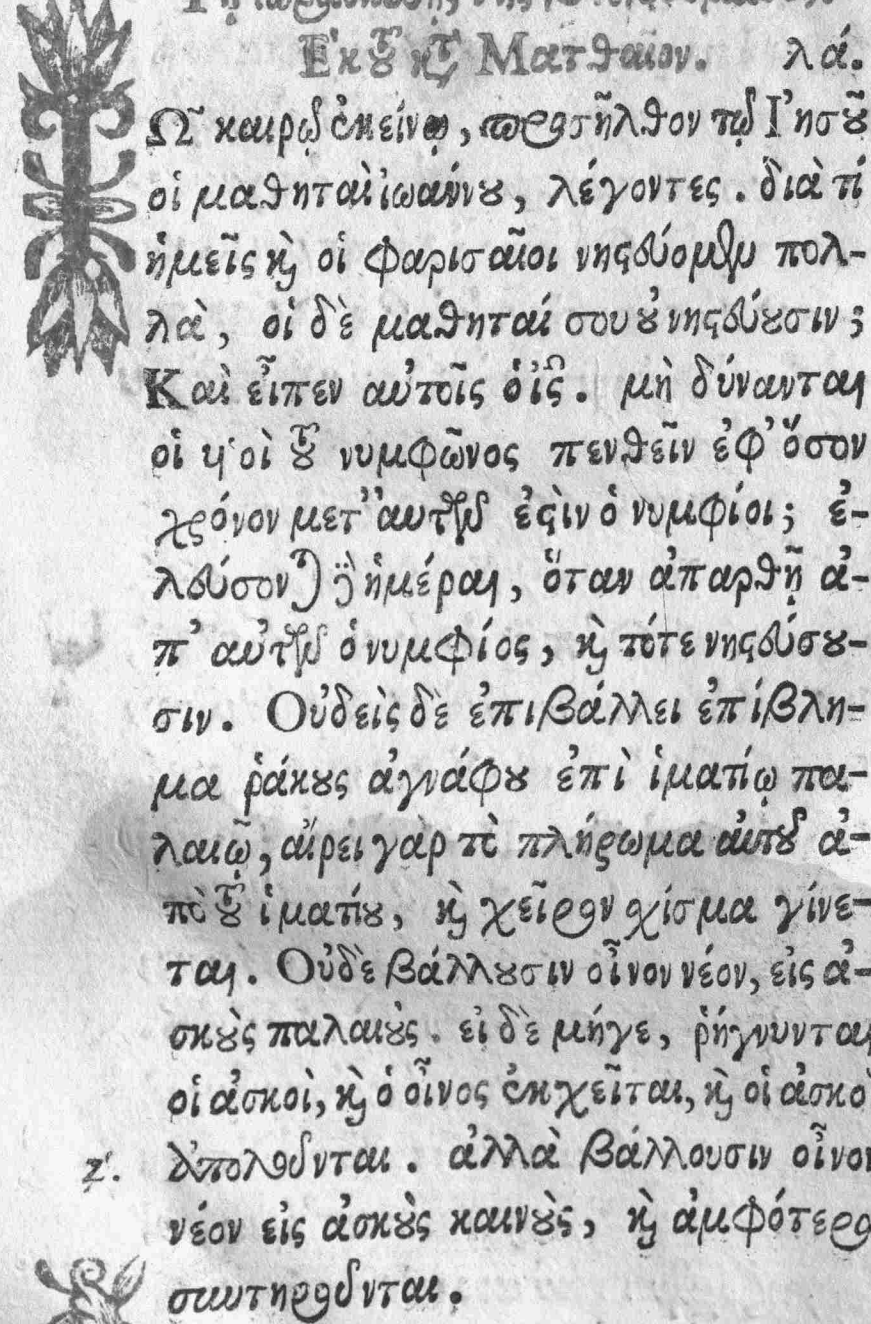 Ἐκ τοῦ κατὰ Ματθαῖον. λά.
Ω῀ καιρῷ ἐκείνῳ, προσῆλθον τῷ Ἰησοῦ
οἱ μαθηταὶ ἰωάννου, λέγοντες. διὰ τί
ἡμεῖς καὶ οἱ φαρισαῖοι νηστεύομεν πολ-
λὰ, οἱ δὲ μαθηταί σου οὐ νηστεύουσιν;
Καὶ εἶπεν αὐτοῖς ὁ ἰς̑. μὴ δύνανται
οἱ ὑιοὶ τοῦ νυμφῶνος πενθεῖν ἐφ' ὅσον
χρόνον μετ' αυτῶν ἐστὶν ὁ νυμφίοι; ἐ-
λεύσονται δὲ ἡμέραι, ὅταν ἀπαρθῇ ἀ-
π' αὐτῶν ὁ νυμφίος, καὶ τότε νηστεύσου-
σιν. Οὐδεὶς δὲ ἐπιβάλλει ἐπίβλη-
μα ῥάκους ἀγνάφου ἐπὶ ἱματίῳ πα-
λαιῷ, αἴρει γὰρ τὸ πλήρωμα αὐτοῦ ἀ-
πὸ τοῦ ἱματίου, καὶ χεῖρον χίσμα γίνε-
ται. Οὐδὲ βάλλουσιν οἶνον νέον, εἰς ἀ-
σκοὺς παλαιούς. εἰ δὲ μήγε, ῥήγνυνται
οἱ ἀσκοὶ, καὶ ὁ οἶνος ἐκχεῖται, καὶ οἱ ἀσκο
ζ'. ἀπολοῦνται. ἀλλὰ βάλλουσιν οἶνον
νέον εἰς ἀσκοὺς καινοὺς, καὶ ἀμφότερο
συντηροῦνται.